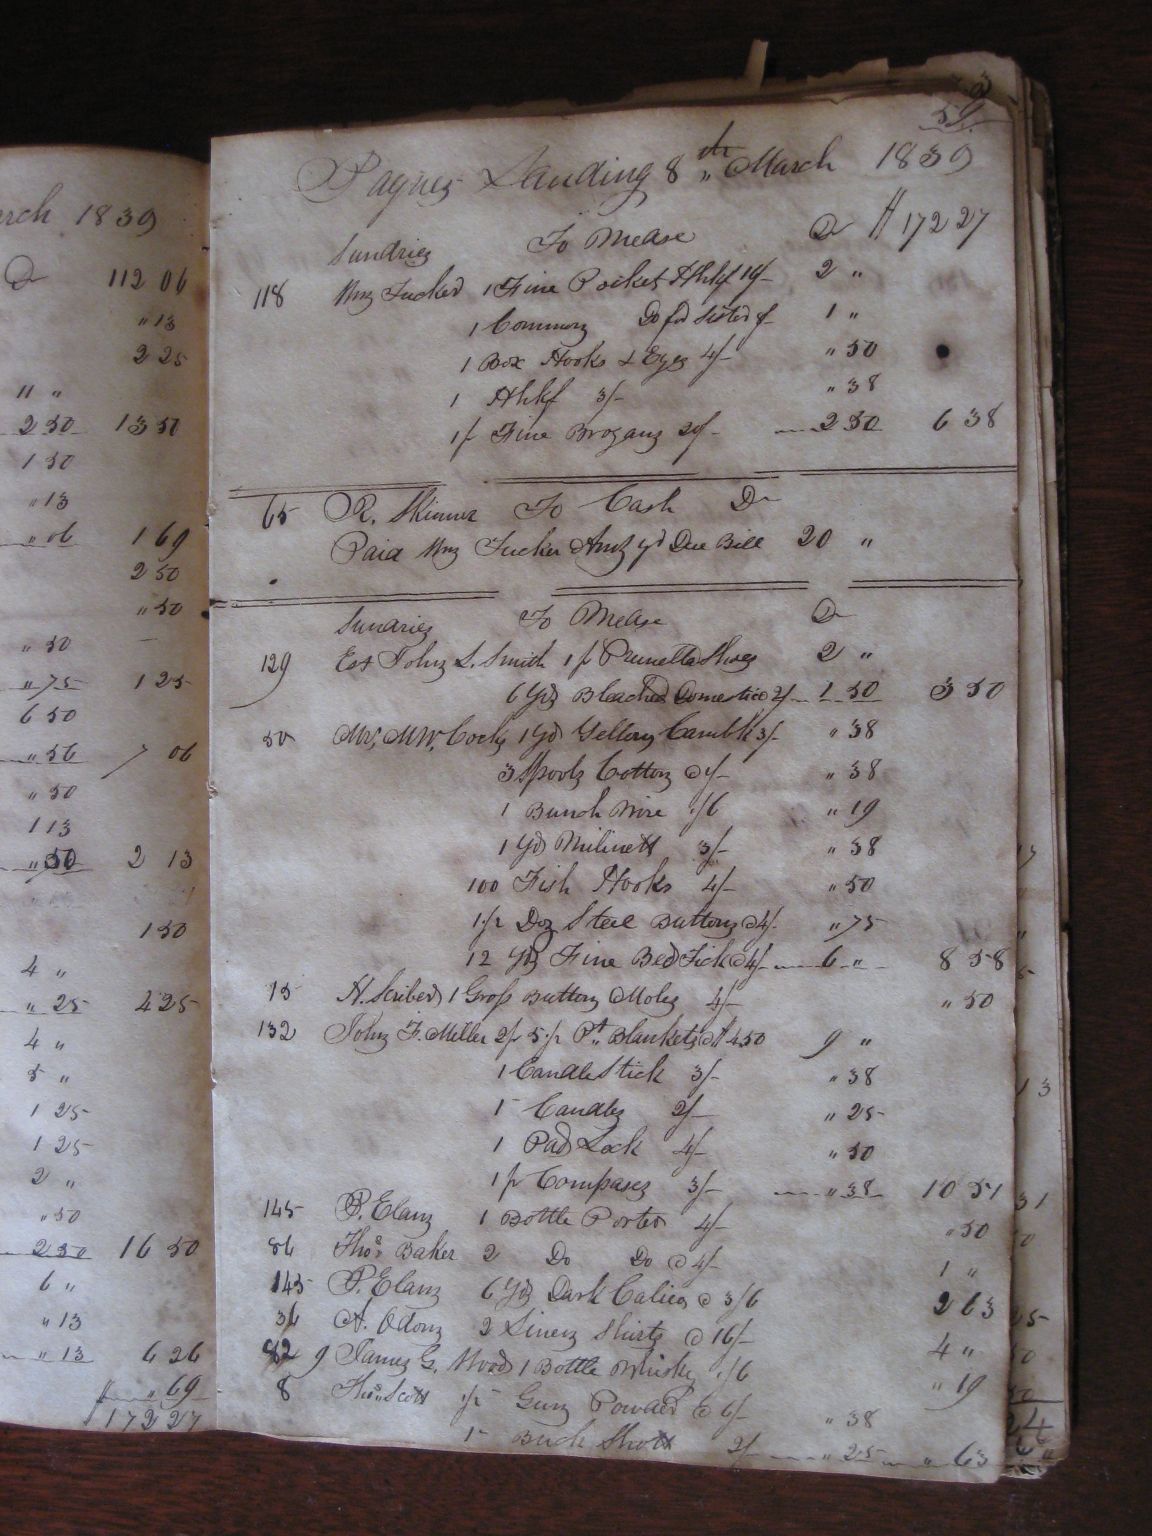 arch 1839
Dr 112 06
" 13
2 25
11 "
2 50 13 50
1 50
" 13
" 06 1 69
2 50
" 50
" 50
" 75 1 25
6 50
" 56 7 06
" 50
1 13
" 50 2 13
1 50
4 "
" 25 4 25
4 "
5 "
1 25
1 25
2 "
" 50
2 50 16 50
6 "
" 13
" 13 6 26
" 69
$172 27
59
Paynes Landing 8th March 1839
Sundries To Mdse Dr $172 27
118 Wm Tucker 1 Fine Pocket Hhkf 16/- 2 "
1 Common Do for Sister 8/- 1 "
1 Box Hooks & Eyes 4/- " 50
1 Hhkf 3/- " 38
1 pr Fine Brogans 20/- 2 50 6 38
65 R. Skinner To Cash Dr
Paid Wm Tucker Amt yr Due Bill 20 "
Sundries To Mdse Dr
129 Est John L. Smith 1 pr Prunella Shoes 2 "
6 Yds Bleached Domestic @ 2/- 1 50 3 50
50 Mrs M.W. Cocks 1 Yd Yellow Cambk 3/- " 38
3 Spools Cotton @ 1/- " 38
1 Bunch Wire 1/6 " 19
1 Yd Milinett 3/- " 38
100 Fish Hooks 4/- " 50
1½ Doz Steel Buttons @ 4/- " 75
12 Yds Fine Bed Tick @ 4/- 6 " 8 58
15 H. Scriber 1 Gross Button Moles 4/- " 50
132 John F. Miller 2 pr Pt Blankets @ $4 50 9 "
1 Candle Stick 3/- " 38
1 Candles 2/- " 25
1 Pad Lock 4/- " 50
1 pr Compases 3/- " 38 10 51
145 P. Elam 1 Bottle Porter 4/- " 50
86 Thos Baker 2 Do Do @ 4/- 1 "
145 P. Elam 6 Yds Dark Calico @ 3/6 2 63
36 A. Odom 2 Linen Shirts @ 16/- 4 "
82 9 James G. Wood 1 Bottle Whisky 1/6 " 19
8 Thos Scott Gun Powder @ 6/- " 38
1 Buck Shott 2/- " 25 " 63